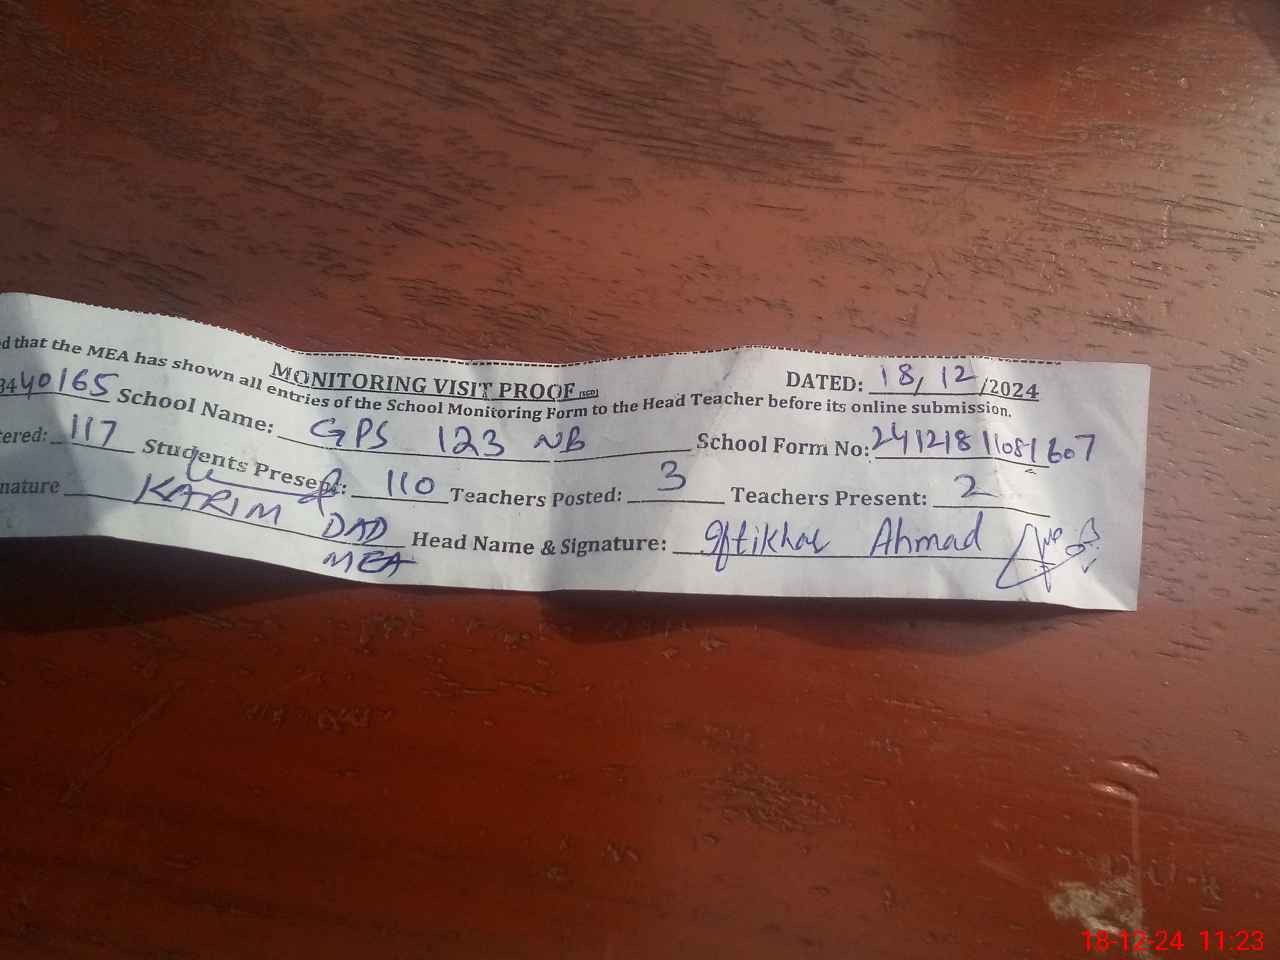 MONITORING VISIT PROOF DATED: 18/12/2024
d that the MEA has shown all entries of the School Monitoring Form to the Head Teacher before its online submission.
3440165 School Name: GPS 123 NB School Form No: 24121811081607
tered: 117 Students Present: 110 Teachers Posted: 3 Teachers Present: 2
nature KARIM DAD Head Name & Signature: Iftikhar Ahmad
MEA
18-12-24 11:23